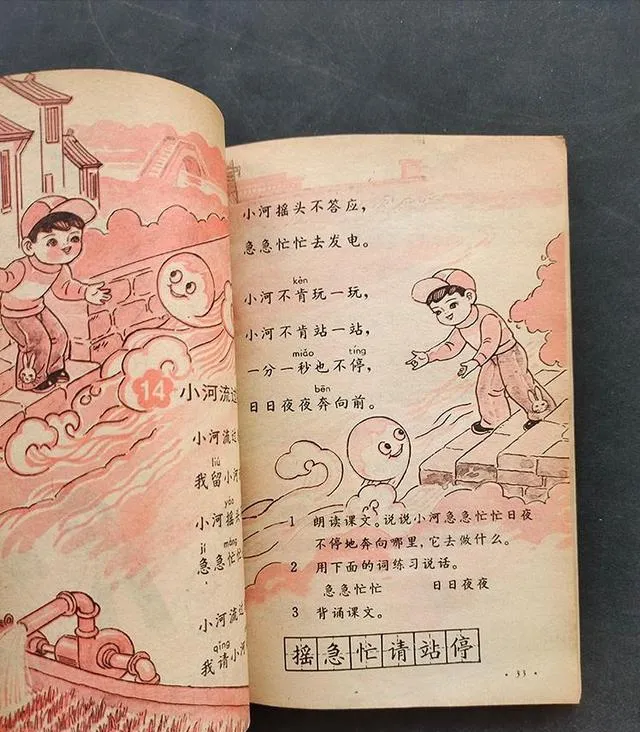 14 小河流过
小河流过
liú
我留小河
yáo
小河摇头
jí máng
急急忙忙
小河流过
qǐng
我请小河
小河摇头不答应,
急急忙忙去发电。
kěn
小河不肯玩一玩,
小河不肯站一站,
miǎo tíng
一分一秒也不停,
bēn
日日夜夜奔向前。
1 朗读课文。说说小河急急忙忙日夜
不停地奔向哪里,它去做什么。
2 用下面的词练习说话。
急急忙忙 日日夜夜
3 背诵课文。
摇急忙请站停
·33·